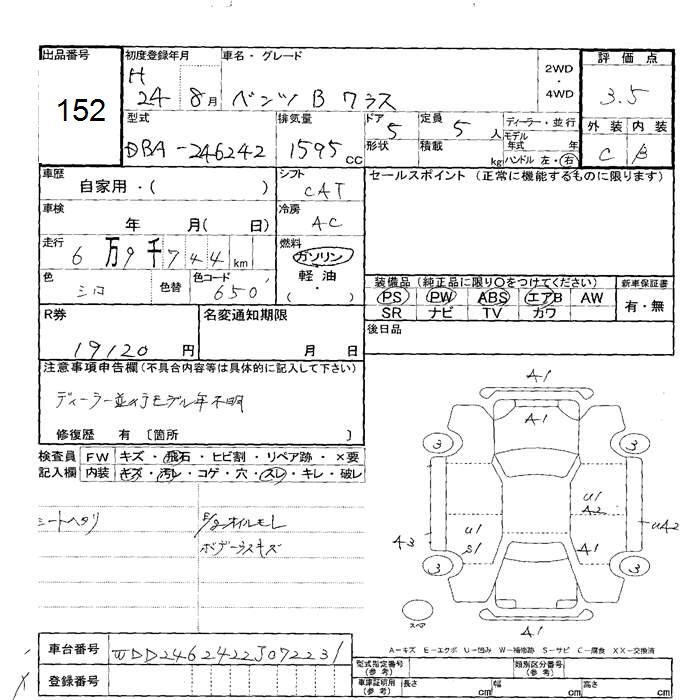 出品番号
152
初度登録年月
H 24 8月
車名・グレード
ベンツ B クラス
2WD
・
4WD
評価点
3.5
外装 内装
C B
型式
DBA-246242
排気量
1595 CC
ドア
5
形状
定員
5 人
積載
kg
ディーラー・並行
モデル年式 年
ハンドル 左・右
車歴
自家用・( )
シフト
CAT
セールスポイント (正常に機能するものに限ります)
車検
年 月( 日)
冷房
AC
走行
6万9千744km
燃料
ガソリン
軽油
( ・ )
色
シロ
色替
色コード
650
装備品 (純正品に限り○をつけてください)
PS PW ABS エアB AW
SR ナビ TV カワ
新車保証書
有・無
R券
19120 円
名変通知期限
月 日
後日品
注意事項申告欄 (不具合内容等は具体的に記入して下さい)
ディーラー並行モデル年不明
修復歴 有 〔箇所 〕
検査員記入欄
FW キズ・飛石・ヒビ割・リペア跡・×要
内装 キズ・汚レ・コゲ・穴・スレ・キレ・破レ
シートヘタリ
E/gオイルモレ
ボデーラスキズ
A1
A1
3 3
U1
A2
U1
S1
A3
UA2
A1
3 3
スペア
A1
A=キズ E=エクボ U=凹み W=補修跡 S=サビ C=腐食 XX=交換済
車台番号
WDD2462422J072231
登録番号
型式指定番号
(参考)
類別区分番号
(参考)
車庫証明用
(参考)
長さ cm
幅 cm
高さ cm